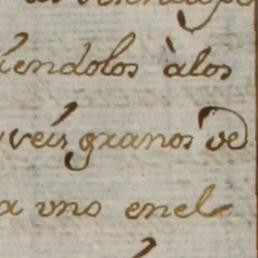 iendolos à los
veis granos de
a vno en el